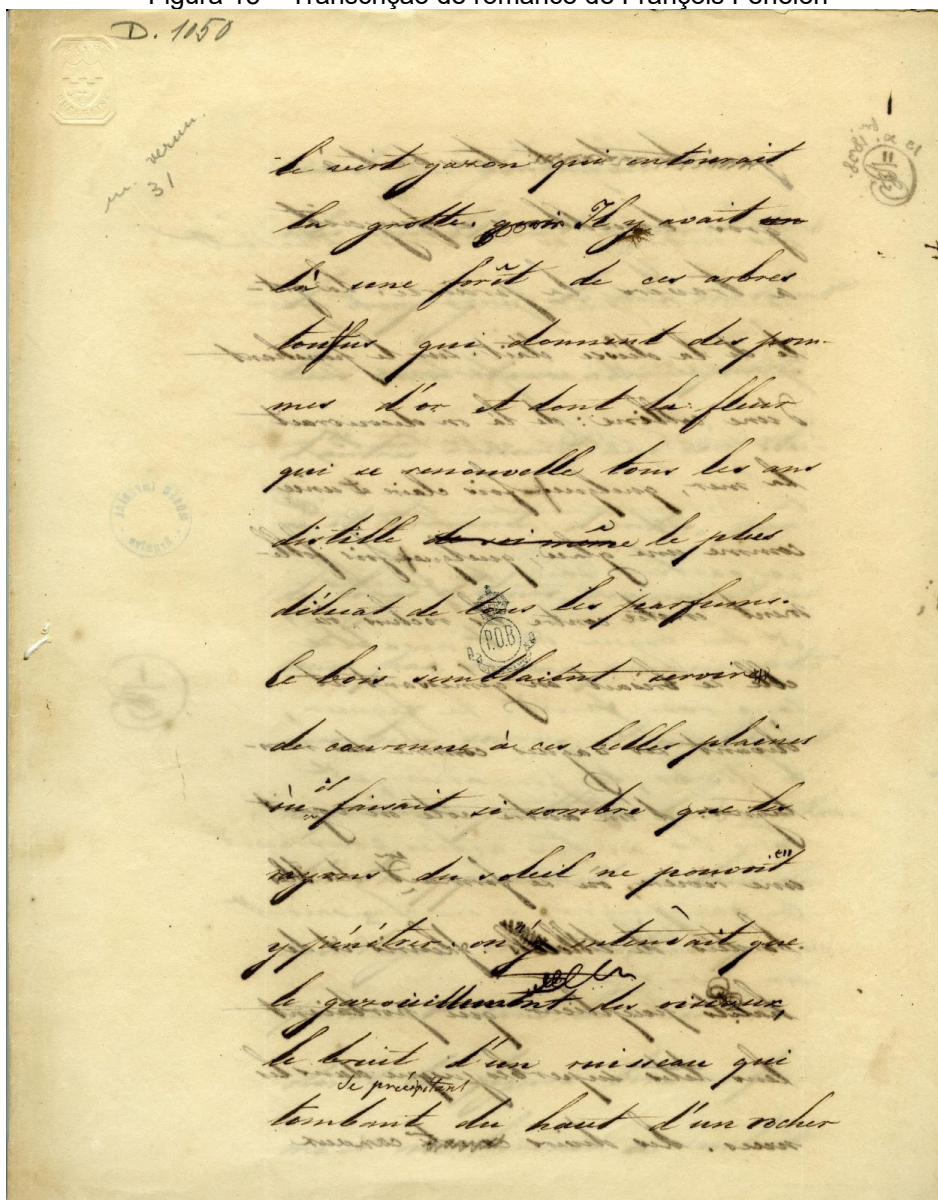 Transcrição de romance de François Fénelon
D. 1050
verm.
31
1
le vert gazon qui entourait
la grotte. Il y avait un
là une forêt de ces arbres
touffus qui donnent des pom-
mes d'or et dont la fleur
qui se renouvelle tous les ans
distille de soi même le plus
délicat de tous les parfums.
P.O.B
Ce bois semblaient servir
de couronne à ces belles plaines
où il faisait si sombre que les
rayons du soleil ne pouvoit
y pénétrer. on y entendait que
le gazouillement des oiseaux,
le bruit d'un ruisseau qui
se précipitant
tombant du haut d'un rocher